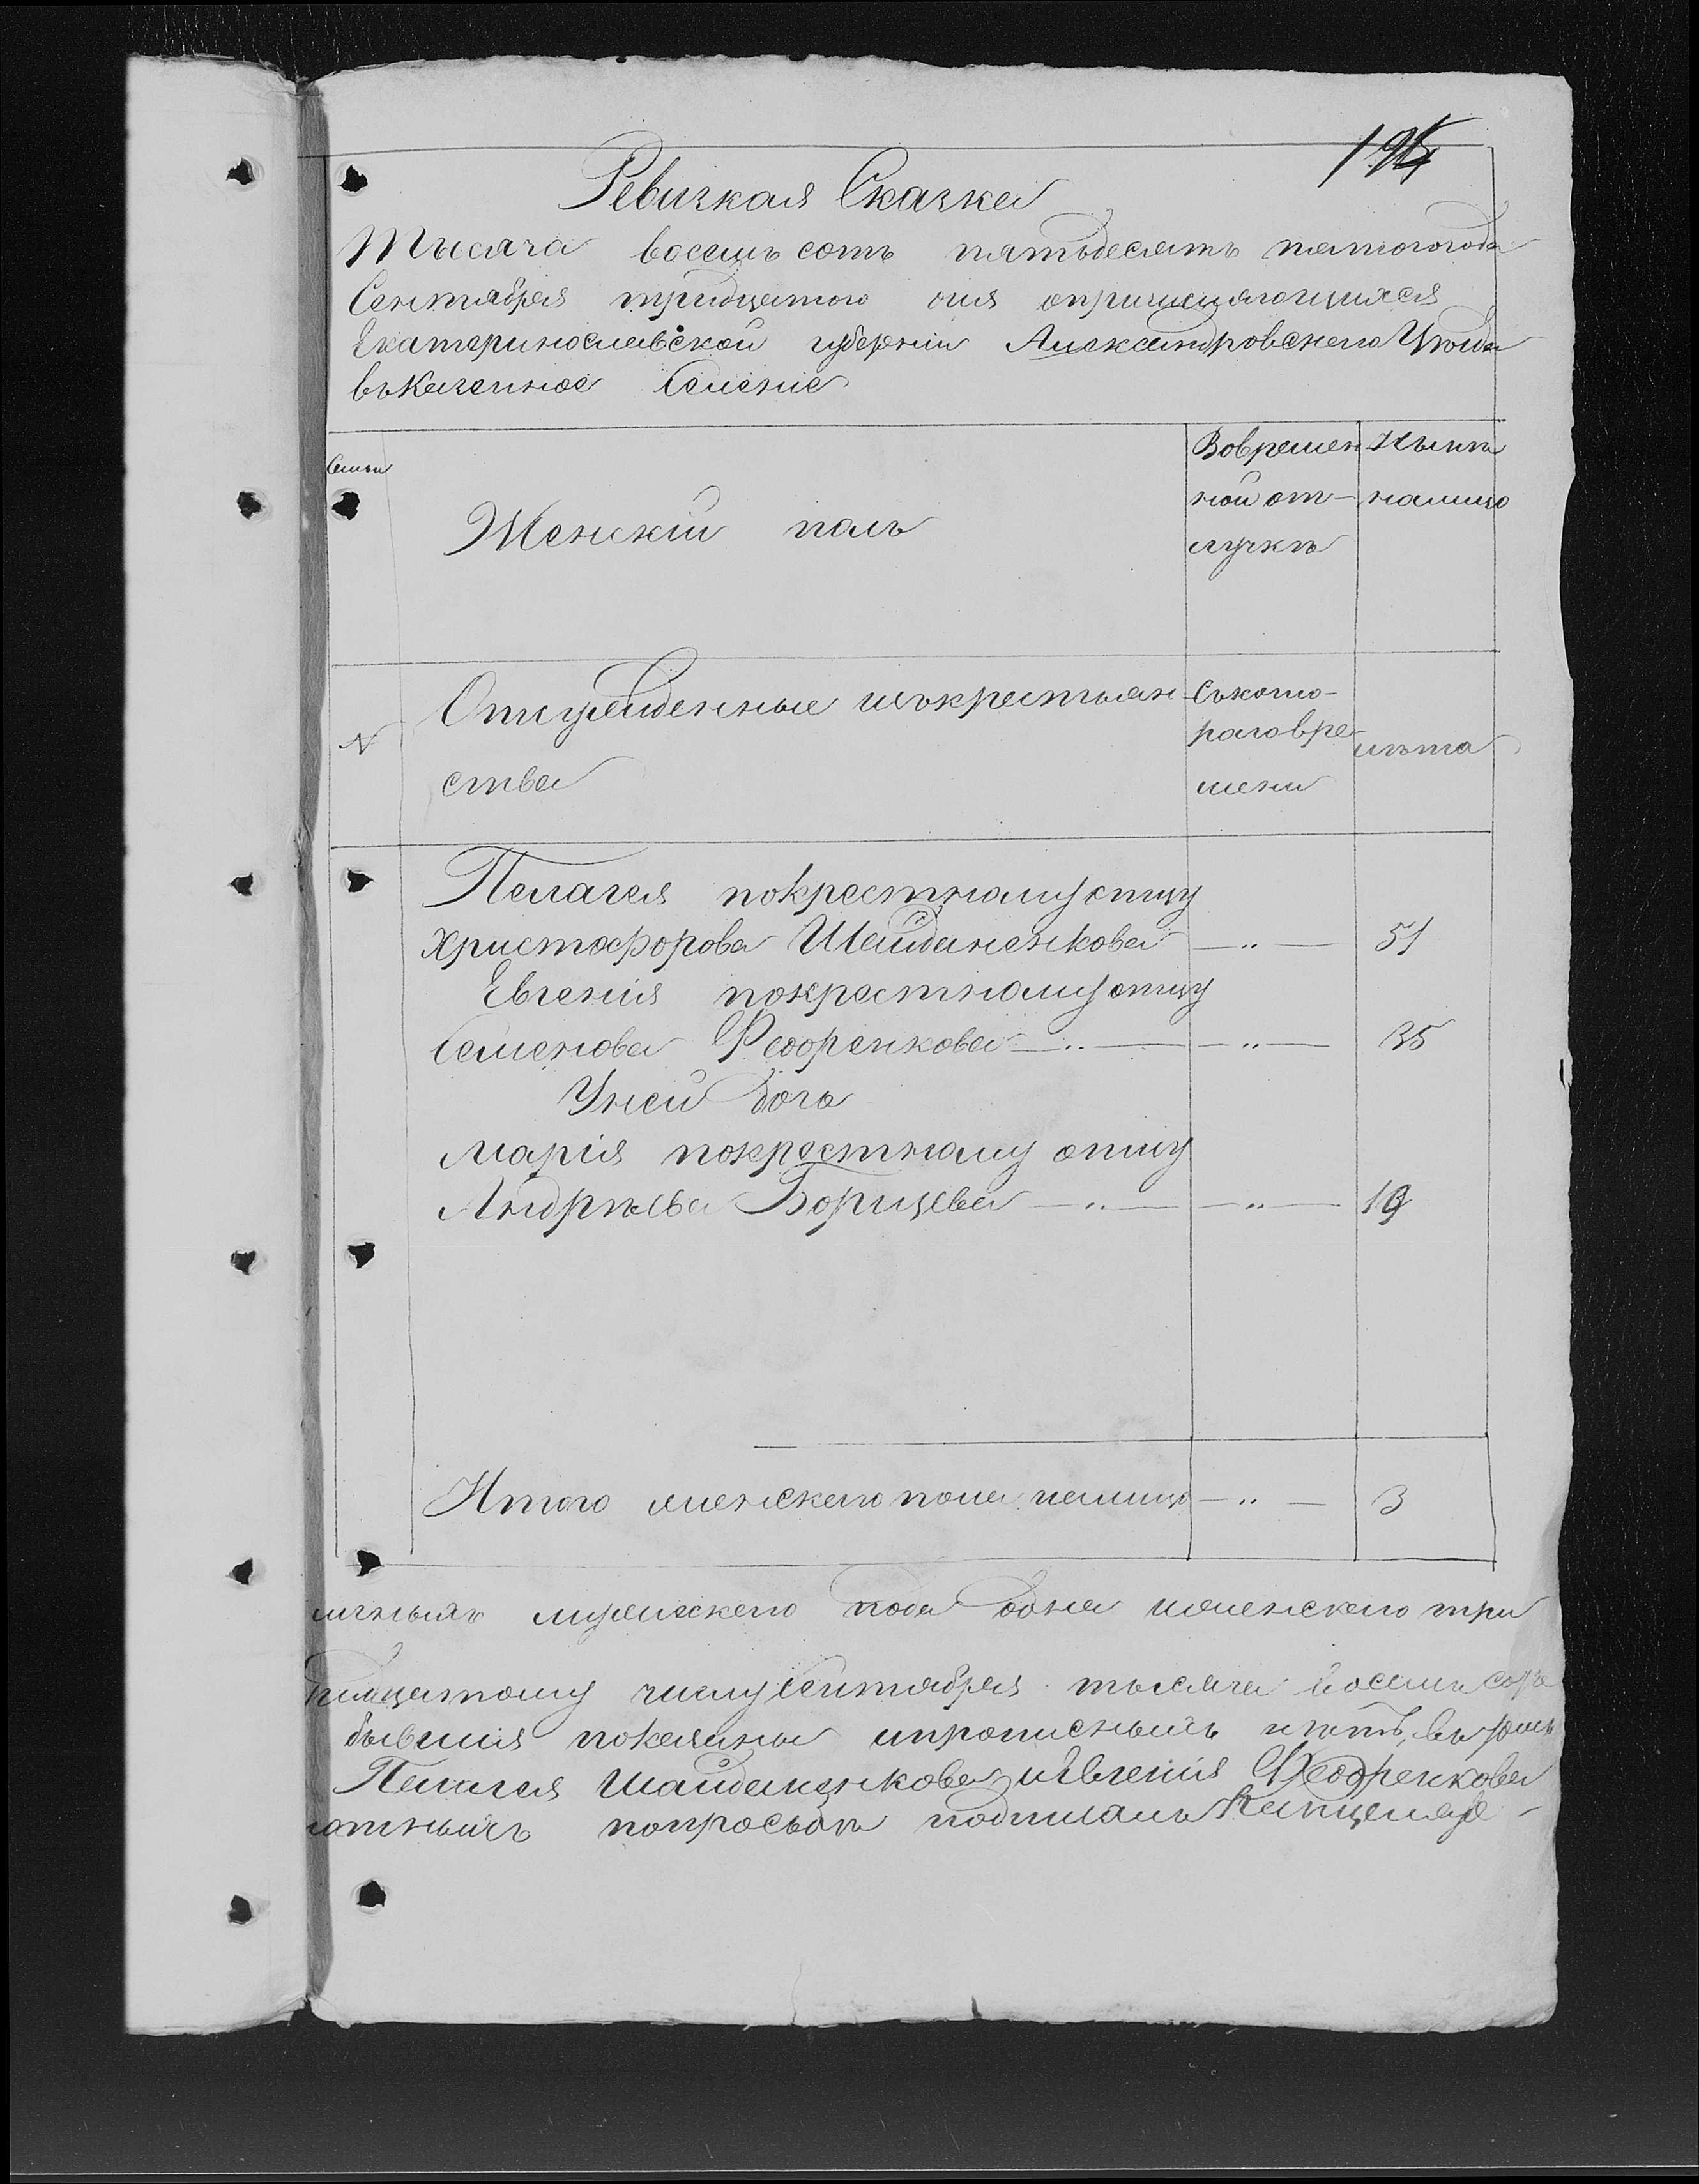 Ревизкая Сказка
Тысяча восемь сотъ пятьдесятъ пятого года
Сентября тридцатого дня опричисляющихся
Екатеринославской губерніи Александровского Уѣзда
въ Казенное Селеніе
Семьи
Женскій полъ
Во времен
ной от-
лучкѣ
Нынѣ
налицо
N
Отсужденные изъ крестьян
ства
Съ кото-
раго вре-
мени
лѣта
Пелагея по крестному отцу
Христофорова Шайданенкова —"— 51
Евгенія по крестному отцу
Семенова Федоренкова —"— —"— 35
У ней дочь
Марія по крестному отцу
Андрѣева Борщева —"— —"— 19
Итого женского пола налицо —"— 3
мужеского пола одна женского три
тридцатому числу Сентября тысяча восемь сотъ
бывшия показаны и прописныхъ нѣтъ, въ
Пелагея Шайданенкова и Евгенія Федоренкова
по просьбѣ подписалъ